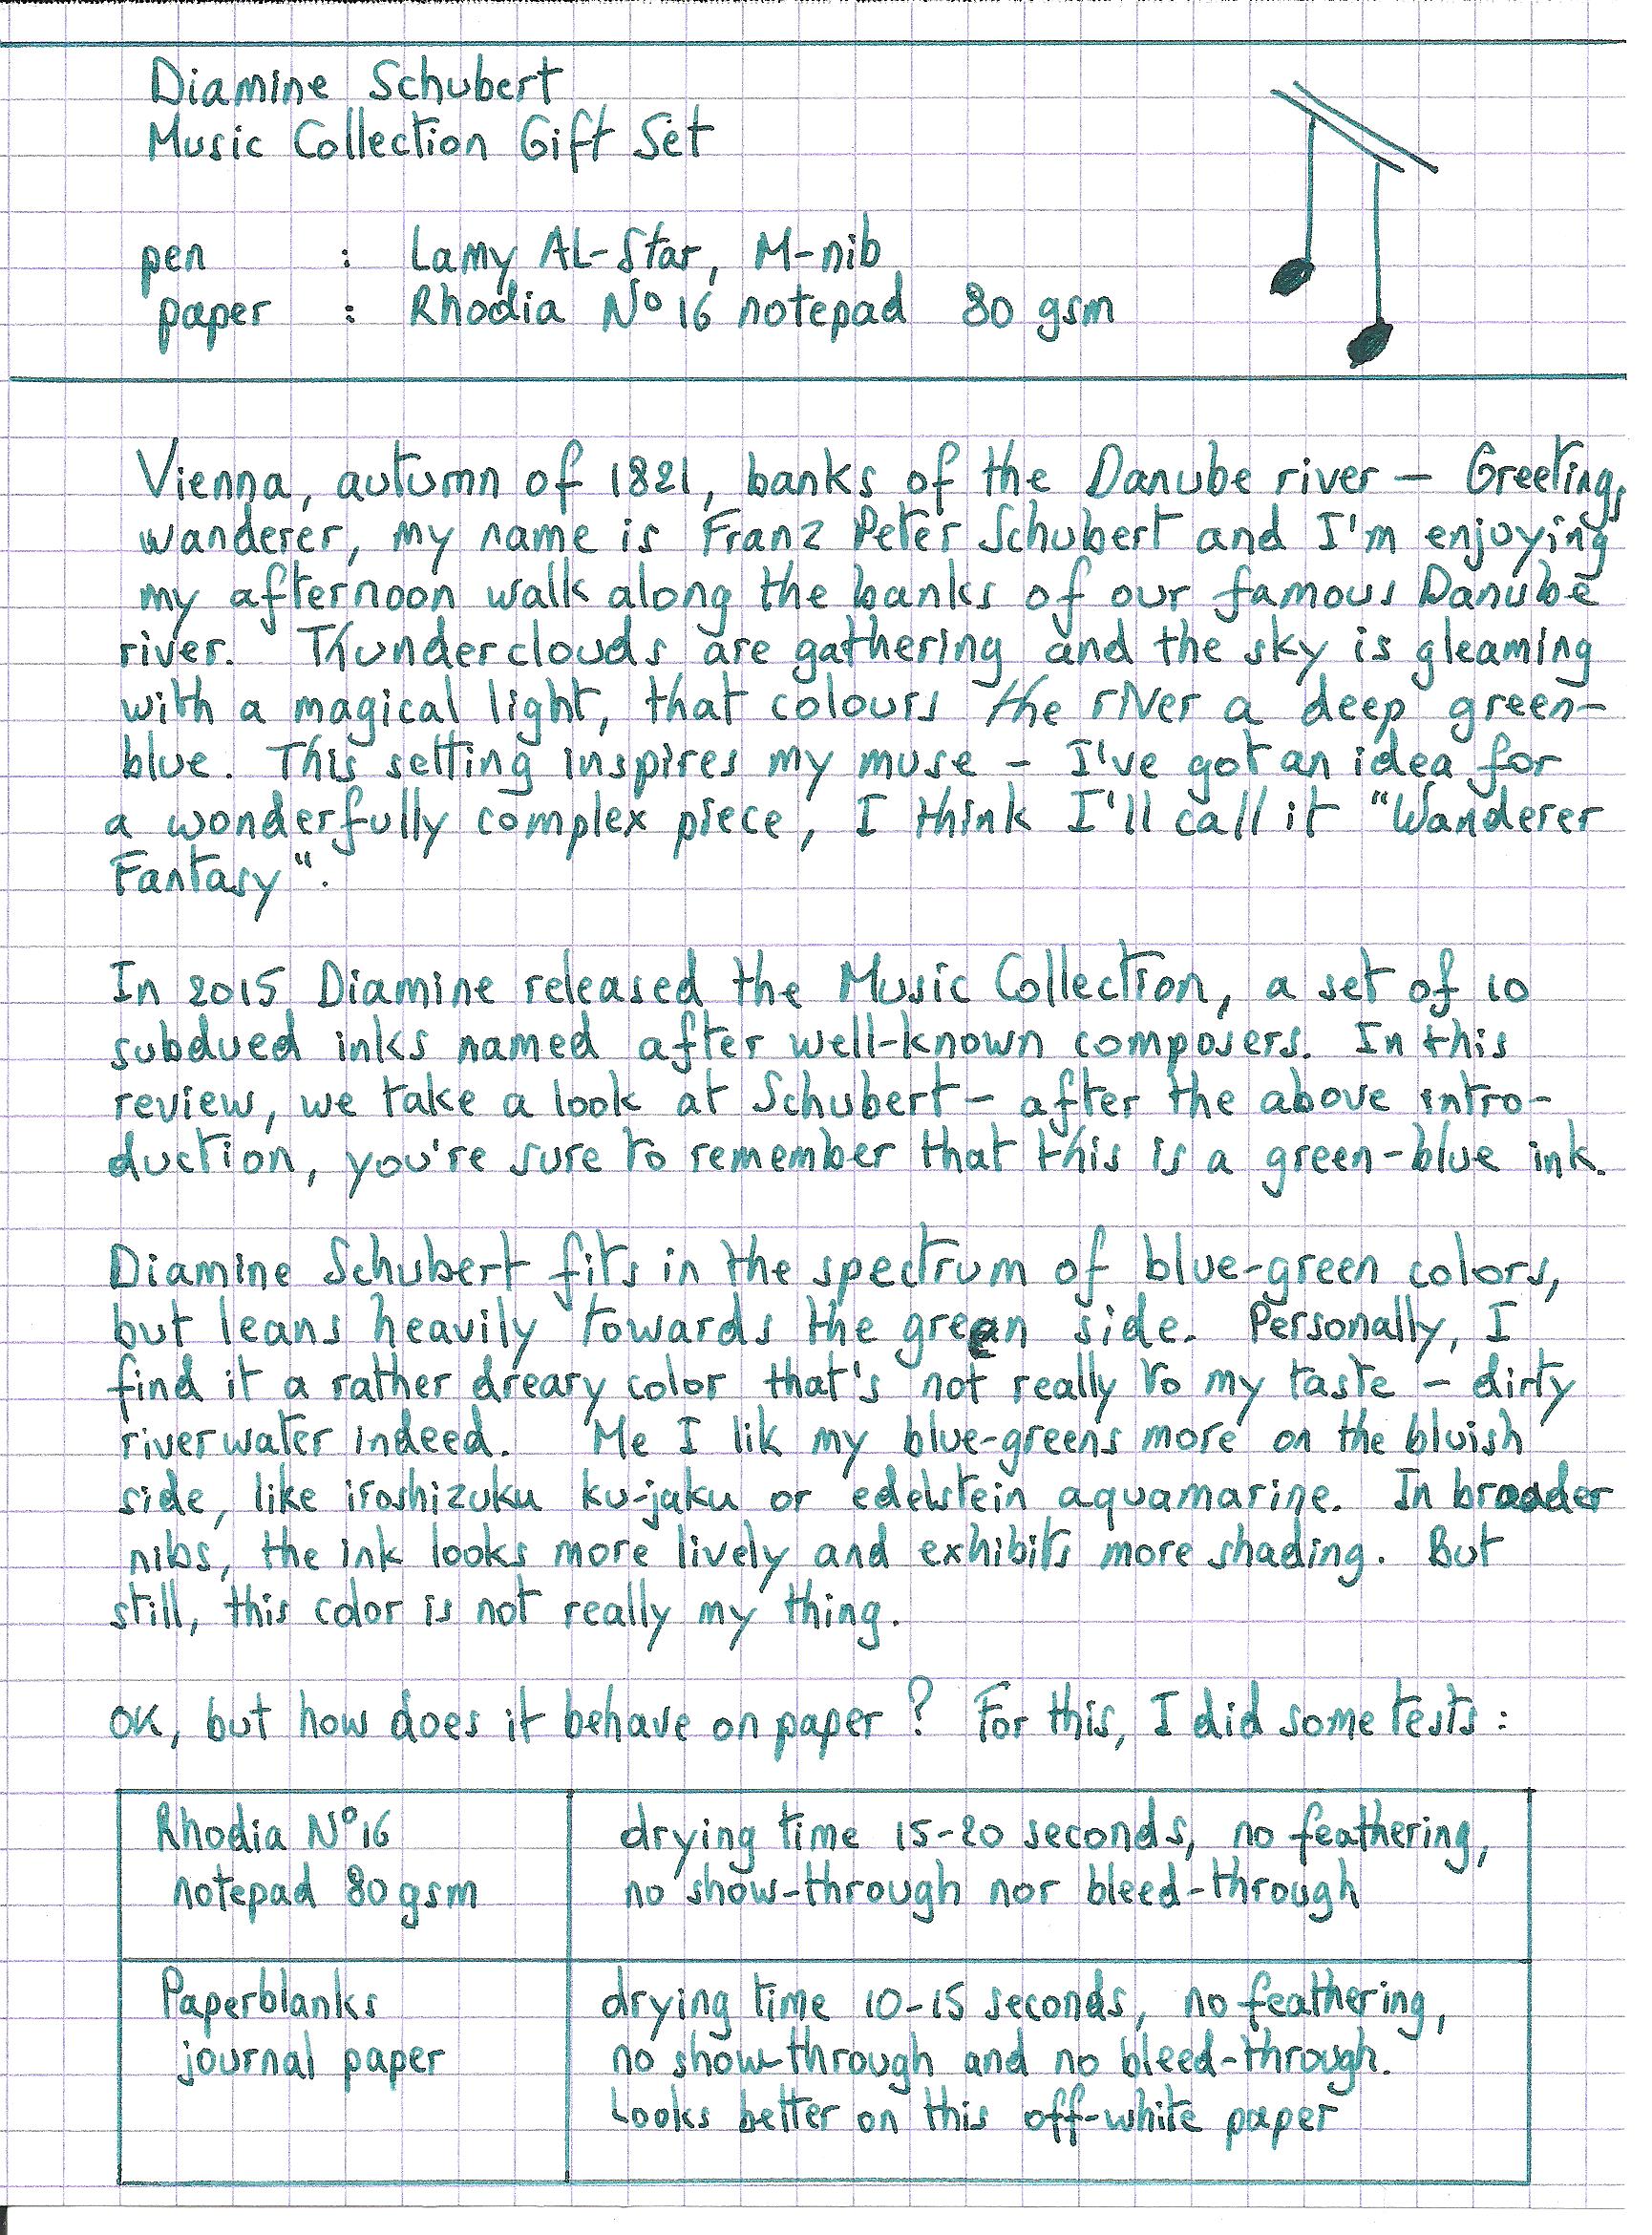 Diamine Schubert
Music Collection Gift Set
pen : Lamy AL-Star, M-nib
paper : Rhodia N° 16 notepad 80 gsm
Vienna, autumn of 1821, banks of the Danube river – Greetings
wanderer, my name is Franz Peter Schubert and I'm enjoying
my afternoon walk along the banks of our famous Danube
river. Thunderclouds are gathering and the sky is gleaming
with a magical light, that colours the river a deep green-
blue. This setting inspires my muse – I've got an idea for
a wonderfully complex piece, I think I'll call it "Wanderer
Fantasy".
In 2015 Diamine released the Music Collection, a set of 10
subdued inks named after well-known composers. In this
review, we take a look at Schubert – after the above intro-
duction, you're sure to remember that this is a green-blue ink.
Diamine Schubert fits in the spectrum of blue-green colors,
but leans heavily towards the green side. Personally, I
find it a rather dreary color that's not really to my taste – dirty
riverwater indeed. Me I lik my blue-greens more on the bluish
side, like iroshizuku ku-jaku or edelstein aquamarine. In broader
nibs, the ink looks more lively and exhibits more shading. But
still, this color is not really my thing.
OK, but how does it behave on paper? For this, I did some tests:
Rhodia N° 16
notepad 80 gsm
drying time 15-20 seconds, no feathering,
no show-through nor bleed-through
Paperblanks
journal paper
drying time 10-15 seconds, no feathering,
no show-through and no bleed-through.
Looks better on this off-white paper